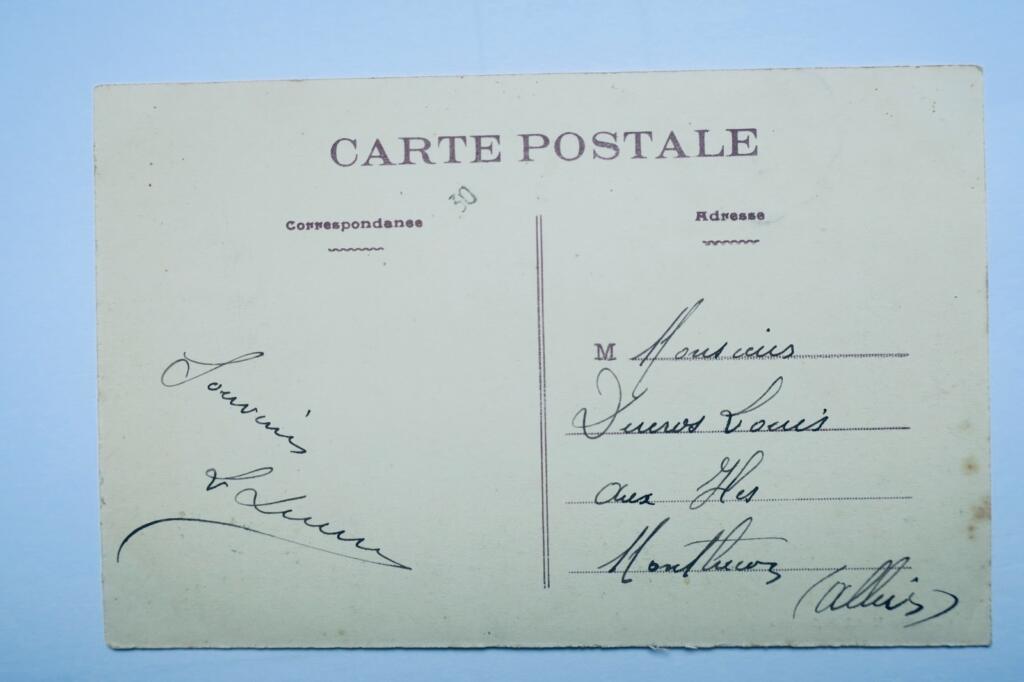 CARTE POSTALE
30
Correspondance
Adresse
Souvenir
L
M Monsieur
Ducros Louis
aux Iles
Montluçon
(Allier)